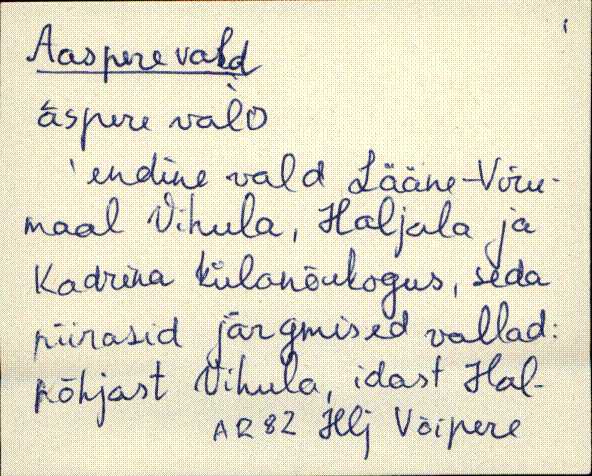 1
Aaspere vald
āspere val̀D
'endine vald Lääne-Viru-
maal Vihula, Haljala ja
Kadrina külanõukogus, seda
piirasid järgmised vallad:
põhjast Vihula, idast Hal-
AR82 Hlj Võipere